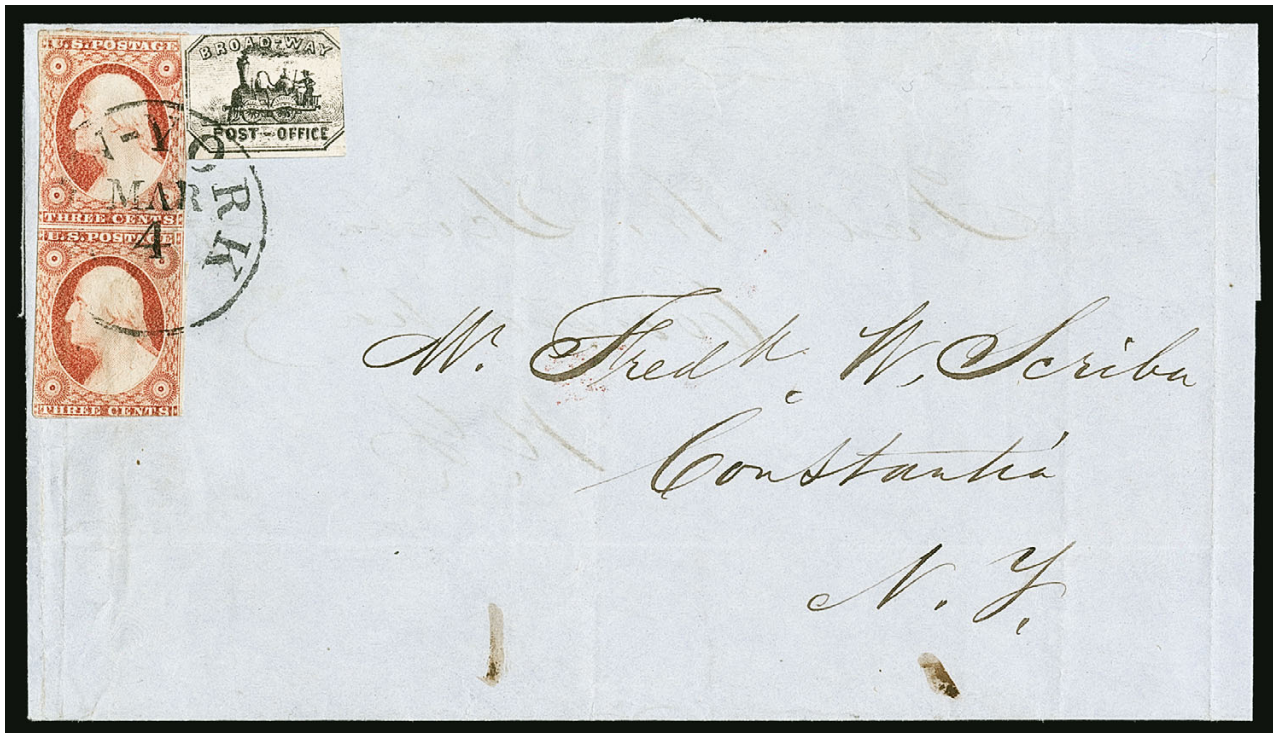 U.S. POSTAGE
THREE CENTS
U.S. POSTAGE
THREE CENTS
BROAD-WAY
POST-OFFICE
YORK
MAR
4
Mr. Fredk. W. Scriba
Constantia
N. Y.